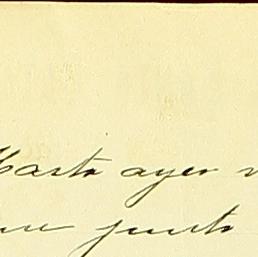 Hasta ayer
junto